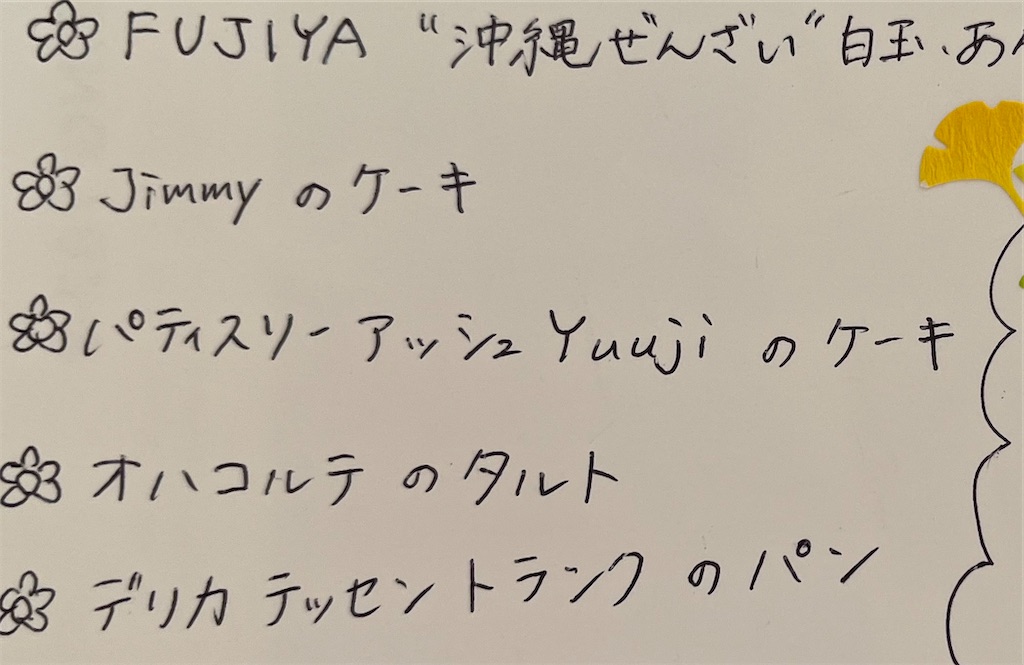 FUJIYA "沖縄ぜんざい" 白玉、あん
Jimmy のケーキ
パティスリー アッシュ Yuuji のケーキ
オハコルテ のタルト
デリカ テッセン トランク のパン